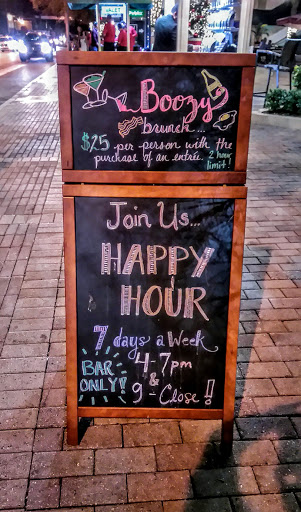 Boozy
brunch...
$25 per person with the
purchase of an entrée. 2 hour
limit!
Join Us...
HAPPY
HOUR
7 days a Week
BAR
ONLY!
4-7pm
&
9-Close!